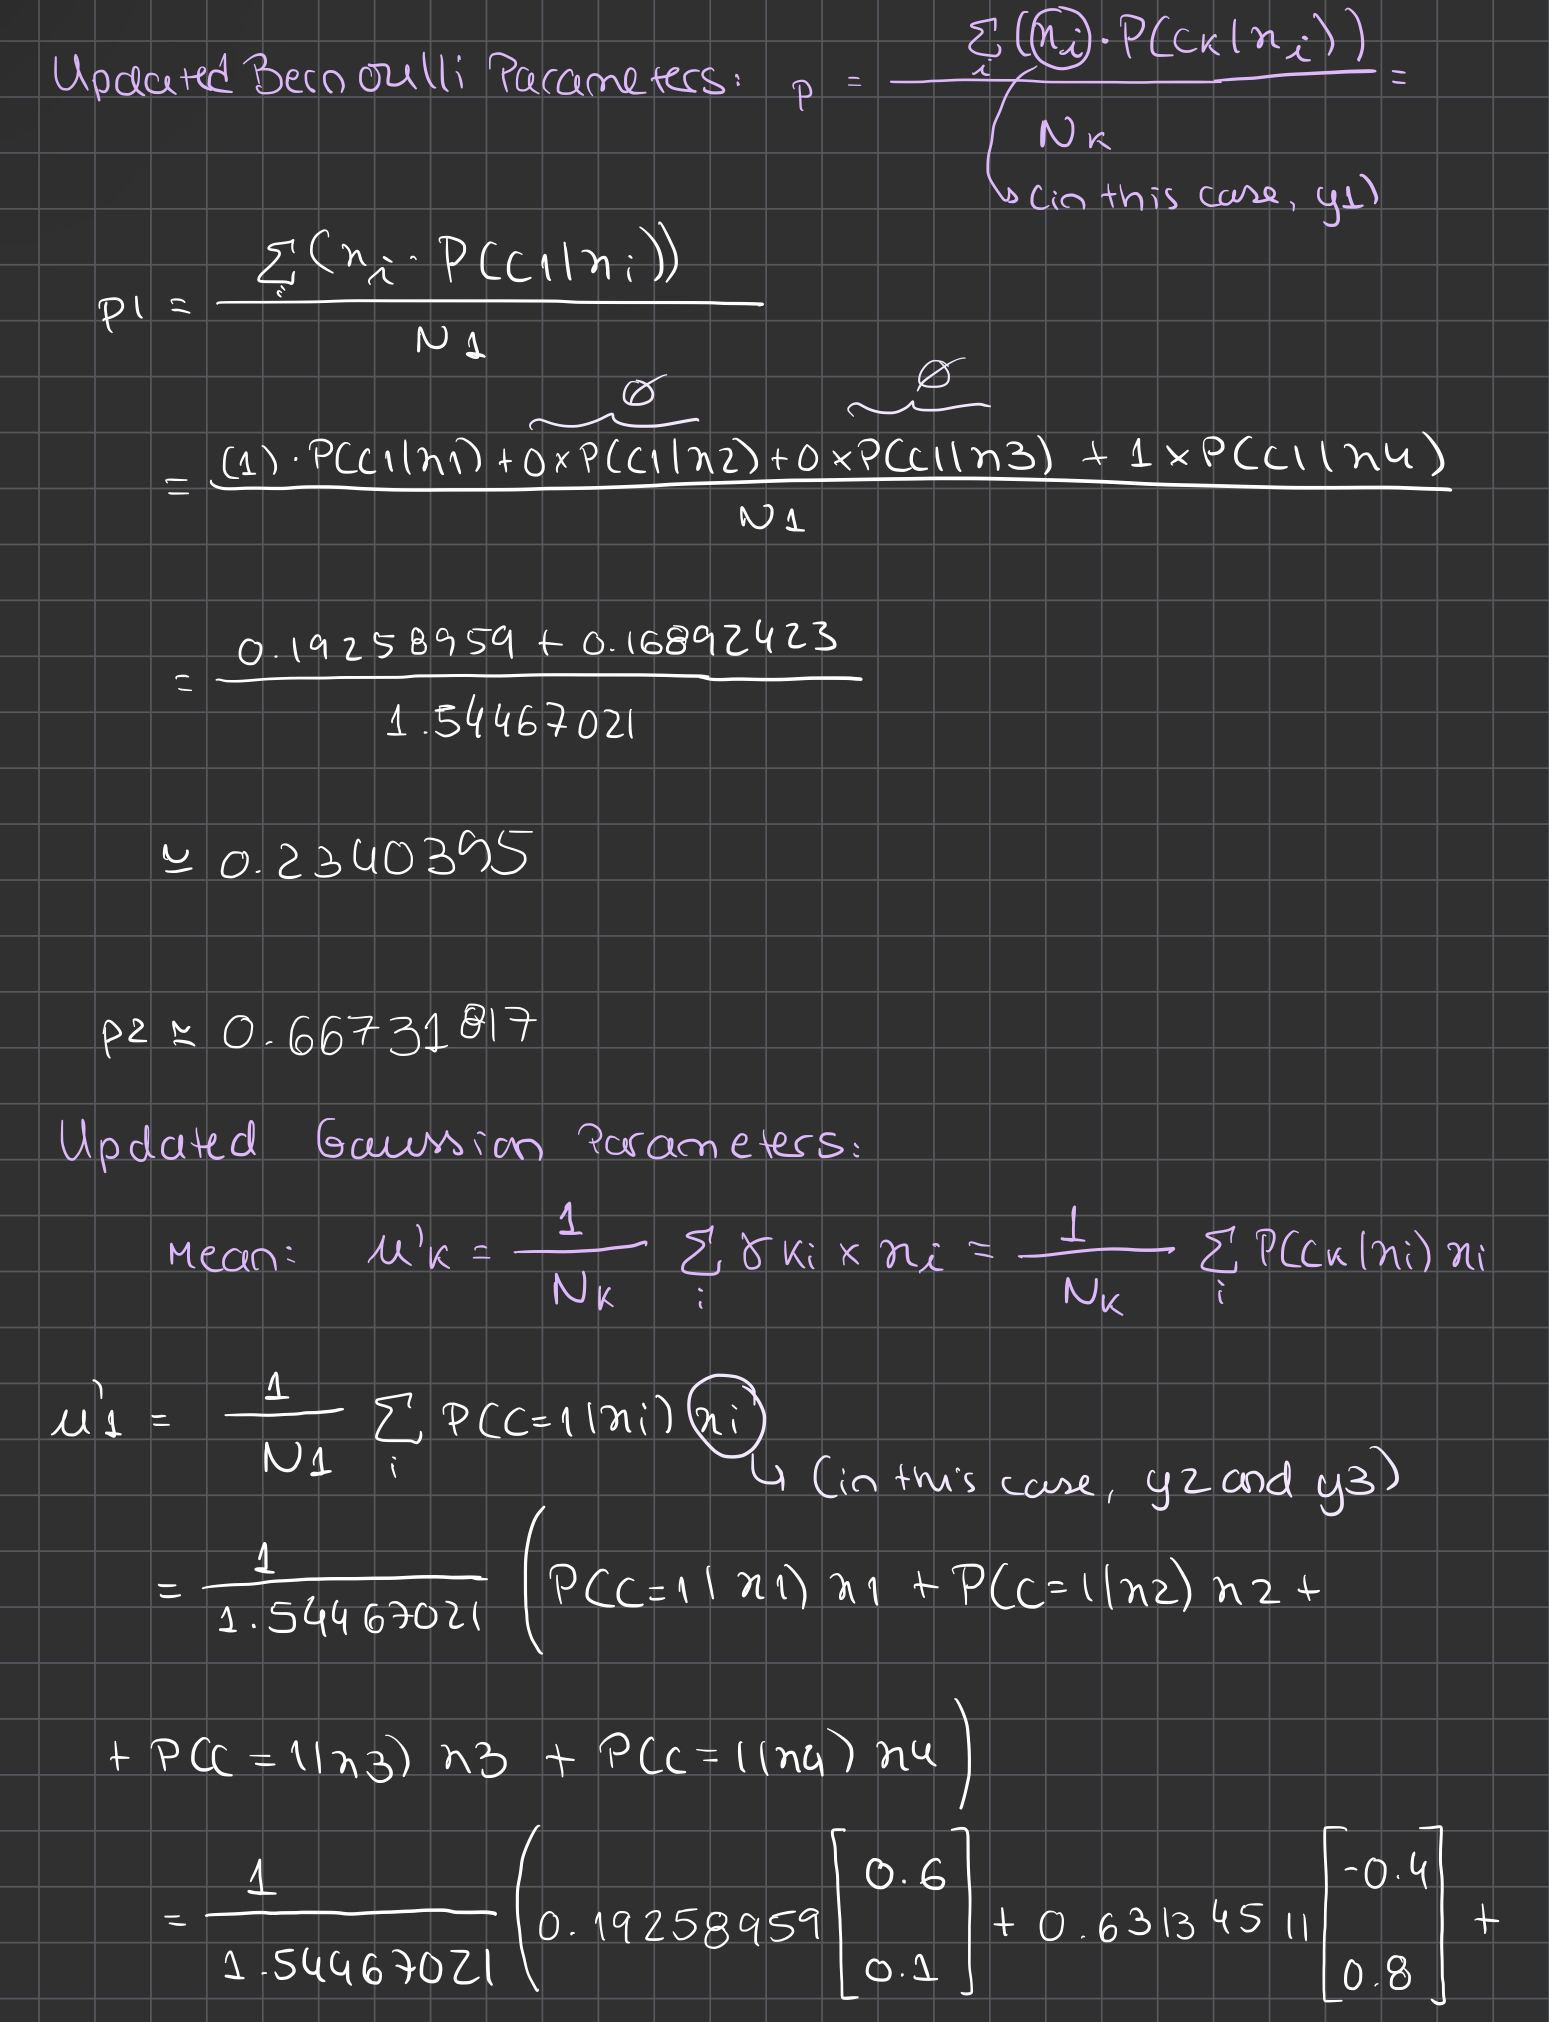 Updated Bernoulli Parameters: p = Σi (xi · P(Ck|xi)) / Nk =
↳ (in this case, y1)
p1 = Σi (xi · P(C1|xi)) / N1
∅ ∅
= ((1) · P(C1|x1) + 0 × P(C1|x2) + 0 × P(C1|x3) + 1 × P(C1|x4)) / N1
= (0.19258959 + 0.16892423) / 1.54467021
≃ 0.2340395
p2 ≃ 0.66731817
Updated Gaussian Parameters:
Mean: μ'k = 1/Nk Σi γki × xi = 1/Nk Σi P(Ck|xi) xi
μ'1 = 1/N1 Σi P(C=1|xi) xi
↳ (in this case, y2 and y3)
= 1/1.54467021 ( P(C=1|x1) x1 + P(C=1|x2) x2 +
+ P(C=1|x3) x3 + P(C=1|x4) x4 )
= 1/1.54467021 ( 0.19258959 [0.6 0.1] + 0.631345 11 [-0.4 0.8] +